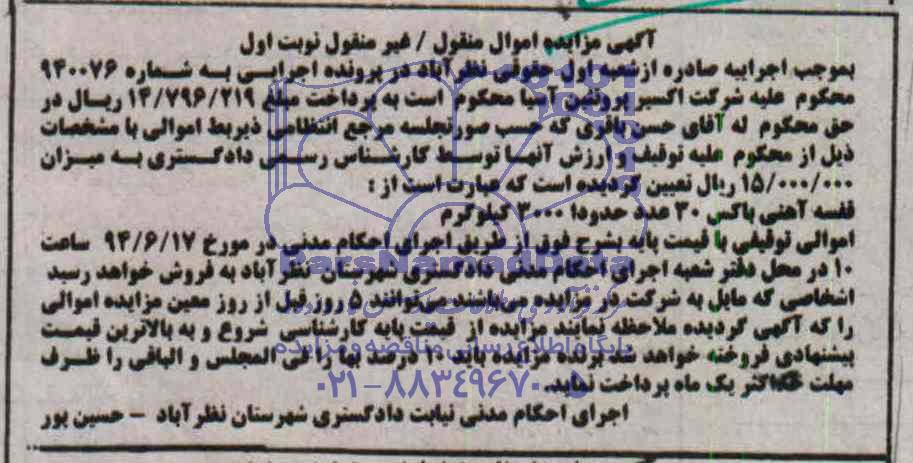 آگهی مزایده اموال منقول / غیر منقول نوبت اول
بموجب اجراییه صادره از شعبه اول حقوقی نظرآباد در پرونده اجرایی به شماره ۹۴۰۰۷۶
محکوم علیه شرکت اکسیر پروتئین آسیا محکوم است به پرداخت مبلغ ۱۴/۷۹۶/۲۱۹ ریال در
حق محکوم له آقای حسن باقری که حسب صورتجلسه مرجع انتظامی ذیربط اموالی با مشخصات
ذیل از محکوم علیه توقیف و ارزش آنها توسط کارشناس رسمی دادگستری به میزان
۱۵/۰۰۰/۰۰۰ ریال تعیین گردیده است که عبارت است از :
قفسه آهنی باکس ۳۰ عدد حدودا ۳۰۰۰ کیلوگرم
اموالی توقیفی با قیمت پایه بشرح فوق از طریق اجرای احکام مدنی در مورخ ۹۴/۶/۱۷ ساعت
۱۰ در محل دفتر شعبه اجرای احکام مدنی دادگستری شهرستان نظرآباد به فروش خواهد رسید
اشخاصی که مایل به شرکت در مزایده می‌باشند می‌توانند ۵ روز قبل از روز معین مزایده اموالی
را که آگهی گردیده ملاحظه نمایند مزایده از قیمت پایه کارشناسی شروع و به بالاترین قیمت
پیشنهادی فروخته خواهد شد برنده مزایده باید ۱۰ درصد بها را فی المجلس و الباقی را ظرف
مهلت حداکثر یک ماه پرداخت نماید.
اجرای احکام مدنی نیابت دادگستری شهرستان نظرآباد - حسین پور
ParsNamadData
پایگاه اطلاع رسانی مناقصه و مزایده
۰۲۱-۸۸۳۴۹۶۷۰-۵